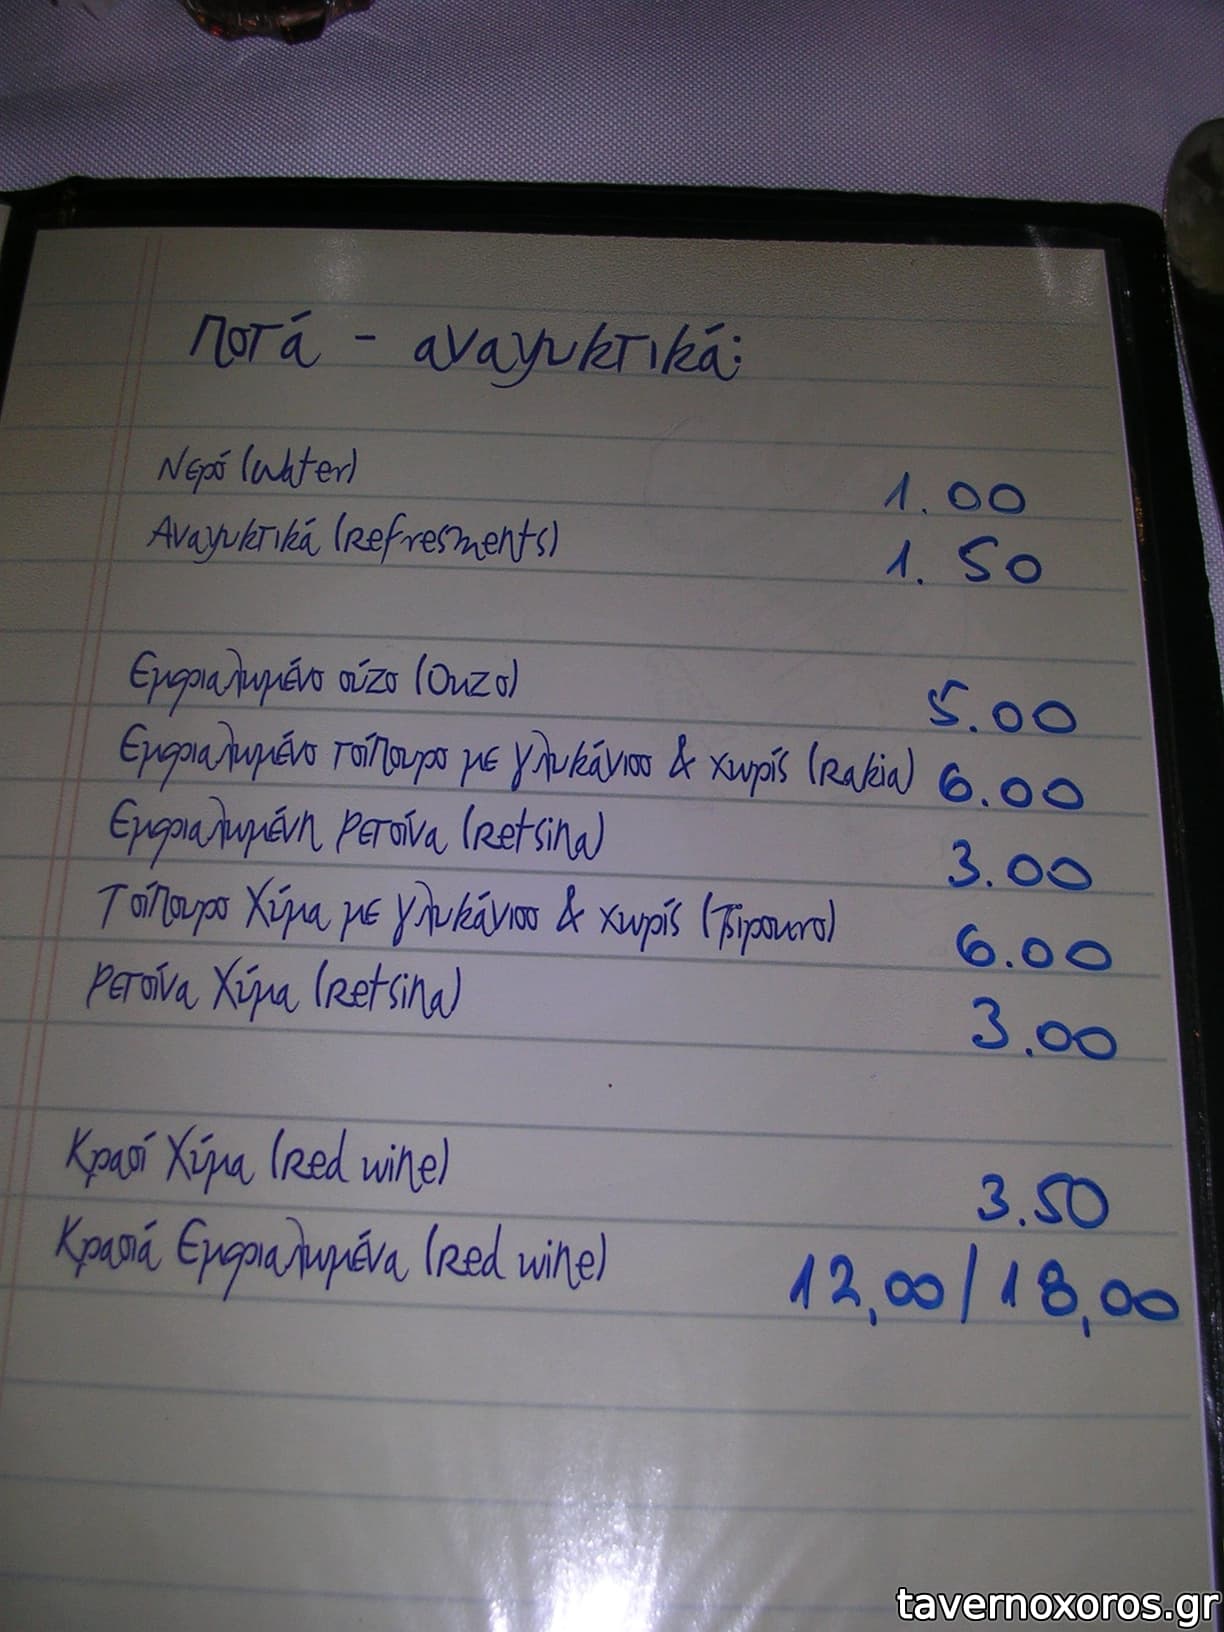 Ποτά - αναψυκτικά:
Νερό (Water) 1.00
Αναψυκτικά (Refresments) 1.50
Εμφιαλωμένο ούζο (Ouzo) 5.00
Εμφιαλωμένο τσίπουρο με γλυκάνισο & χωρίς (Rakia) 6.00
Εμφιαλωμένη ρετσίνα (Retsina) 3.00
Τσίπουρο Χύμα με γλυκάνισο & χωρίς (Tsipouro) 6.00
Ρετσίνα Χύμα (Retsina) 3.00
Κρασί Χύμα (Red wine) 3.50
Κρασιά Εμφιαλωμένα (Red wine) 12,00/18,00
tavernoxoros.gr